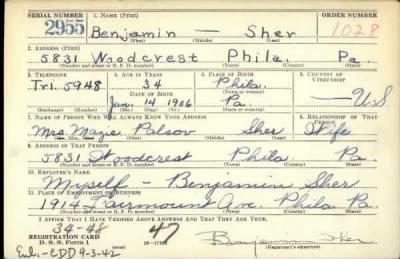 SERIAL NUMBER 1. NAME (Print) ORDER NUMBER
2955 Benjamin — Sher 1028
(First) (Middle) (Last)
2. ADDRESS (Print)
5831 Woodcrest Phila. Pa.
(Number and street or R. F. D. number) (Town) (County) (State)
3. TELEPHONE 4. AGE IN YEARS 5. PLACE OF BIRTH 6. COUNTRY OF CITIZENSHIP
Tri. 5948 34 Phila.
DATE OF BIRTH (Town or county)
Jan. 14 1906 Pa. — U.S
(Exchange) (Number) (Mo.) (Day) (Yr.) (State or country)
7. NAME OF PERSON WHO WILL ALWAYS KNOW YOUR ADDRESS 8. RELATIONSHIP OF THAT PERSON
Mrs Mazie Palsov Sher Wife
(Mr., Mrs., Miss) (First) (Middle) (Last)
9. ADDRESS OF THAT PERSON
5831 Woodcrest Phila Pa.
(Number and street or R. F. D. number) (Town) (County) (State)
10. EMPLOYER'S NAME
Myself — Benjamin Sher
11. PLACE OF EMPLOYMENT OR BUSINESS
1914 Fairmount Ave. Phila Pa.
(Number and street or R. F. D. number) (Town) (County) (State)
I AFFIRM THAT I HAVE VERIFIED ABOVE ANSWERS AND THAT THEY ARE TRUE.
34-48 47
REGISTRATION CARD
D. S. S. Form 1 Benjamin Sher
(Registrant's signature)
Enl.-CDD 9-3-42